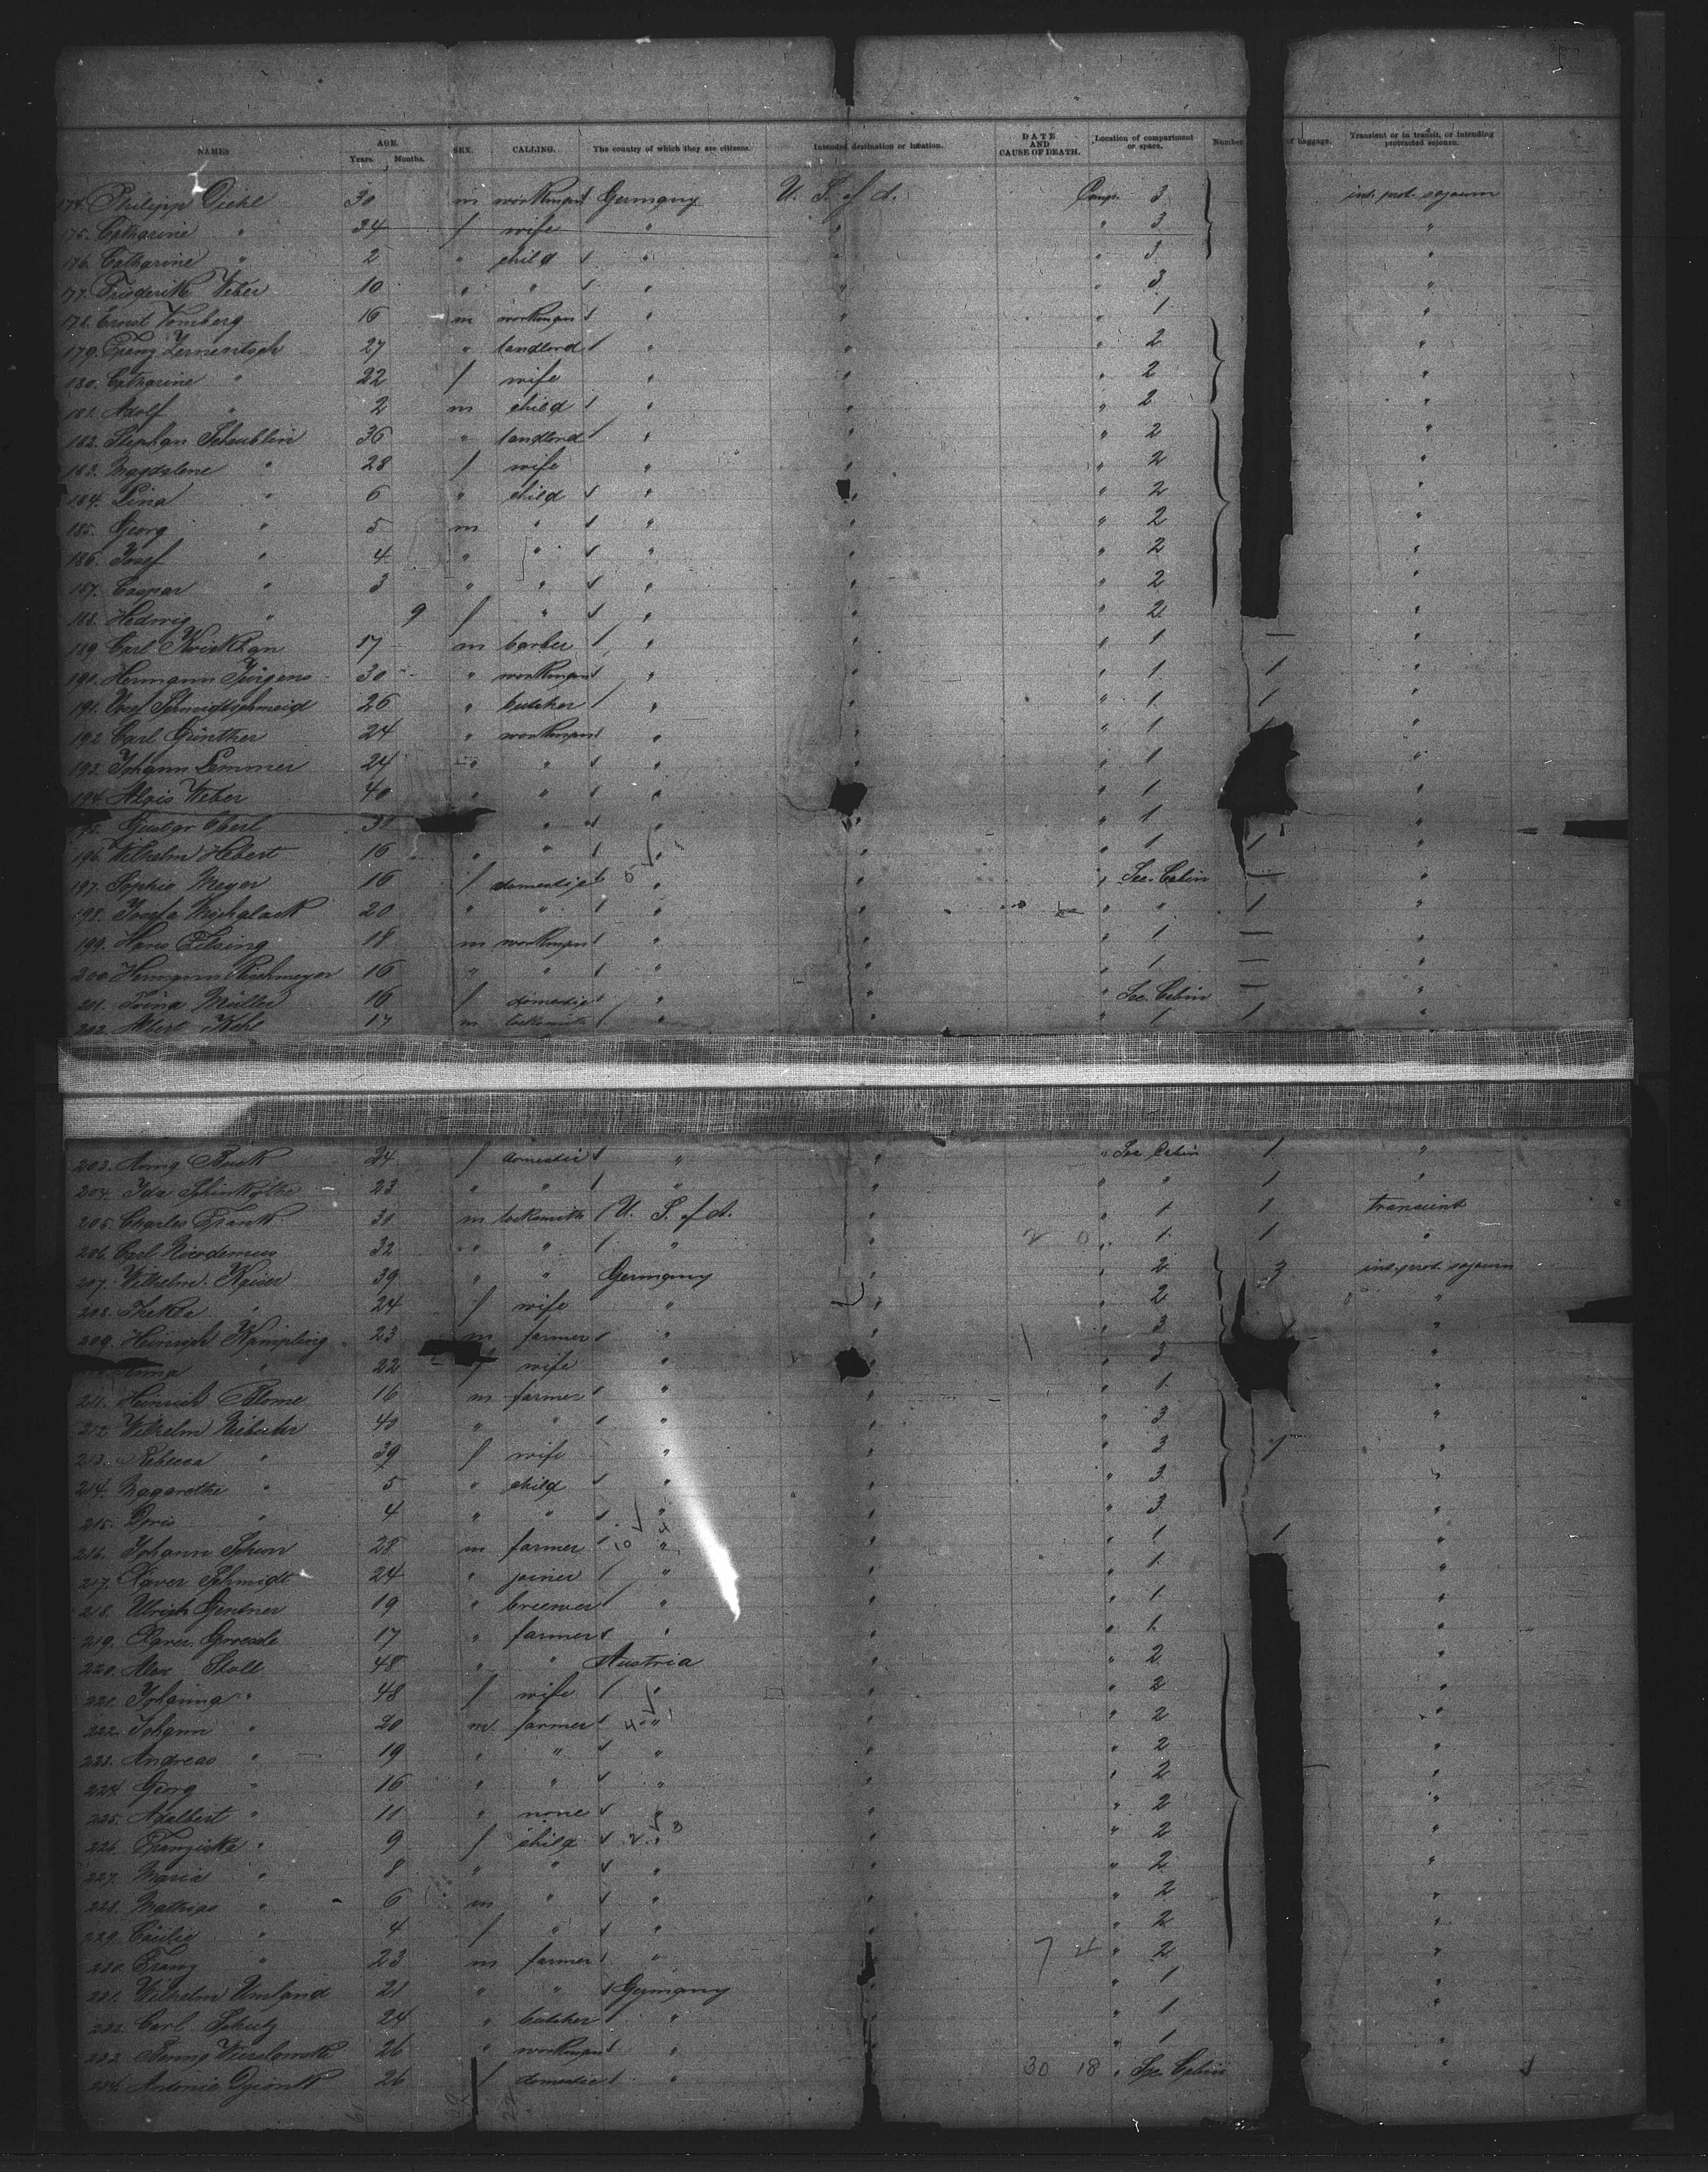 NAMES AGE. Years. Months. SEX. CALLING. The country of which they are citizens. Intended destination or location. DATE AND CAUSE OF DEATH. Location of compartment or space. Number of baggage. Transient or in transit, or intending protracted sojourn.
174. Philipp Diehl 30 m workman Germany U. S. of A. Comp. 3 int. prot. sojourn
175. Catharine " 34 f wife " " " 3 "
176. Catharine " 2 " child " " " 3 "
177. Friederik Weber 10 " " " " " 3 "
178. Ernst Vomberg 16 m workman " " " 1 "
179. Franz 27 " landlord " " " 2 "
180. Catharine " 22 f wife " " " 2 "
181. Adolf " 2 m child " " " 2 "
182. Stephan Scheublin 36 " landlord " " " 2 "
183. Magdalene " 28 f wife " " " 2 "
184. Lina " 6 " child " " " 2 "
185. Georg " 5 m " " " " 2 "
186. Josef " 4 " " " " " 2 "
187. Caspar " 3 " " " " " 2 "
188. Hedwig " 9 f " " " " 2 "
189 Carl 17 m barber " " " 1 — "
190. Hermann Jürgens 30 " workman " " " 1 1 "
191. Josef 26 " butcher " " " 1 1 "
192 Carl Günther 24 " workman " " " 1 "
193. Johann Lemmer 24 " " " " " 1 "
194 Alois Weber 40 " " " " " 1 "
195. Gustav Eberl 31 " " " " 1 "
196. Wilhelm Hebert 16 " " " " " 1 1 "
197. Sophie Meyer 16 f domestic " " " Sec. Cabin — "
198. Josefa Michalack 20 " " " " " " 1 "
199. Hans Filsing 18 m workman " " " 1 — "
200. Hermann 16 " " " " " 1 — "
201. Trina Müller 16 f domestic " " " Sec. Cabin — "
202. Albert Kehl 17 m locksmith " " 1 1 "
203. Anna Buck 24 f domestic " " " Sec Cabin 1 "
204. Ida 23 " " " " " " 1 "
205. Charles Frank 31 m locksmith U. S. of A. " " 1 1 transient
206. Carl Nicodemus 32 " " " " 2 0 " 1 1 "
207. Wilhelm Kaiser 39 " " Germany " " 2 3 int. prot. sojourn
208. Thekla " 24 f wife " " " 2 "
209. Heinrich Kampling 23 m farmer " " " 3 "
Anna " 22 f wife " " 3 "
211. Heinrich Blome 16 m farmer " " " 1 "
212. Wilhelm 40 " " " " " 3 "
213. Rebecca " 39 f wife " " " 3 "
214. Magarethe " 5 " child " " 3 "
215. Doris " 4 " " " " " 3 "
216. Johann 28 m farmer 10 " " " 1 1 "
217. Xaver Schmidt 24 " joiner " " " 1 "
218. Ulrich Gentner 19 " breewer " " " 1 "
219. Xaver 17 " farmer " " " 1 "
220. Alex Stoll 48 " " Austria " " 2 "
221. Johanna " 48 f wife " " " 2 "
222. Johann " 20 m farmer " " " 2 "
223. Andreas " 19 " " " " " 2 "
224. Georg " 16 " " " " " 2 "
225. Adalbert " 11 " none " " " 2 "
226. Franziska " 9 f child " " " 2 "
227. Maria " 8 " " " " " 2 "
228. Mathias " 6 m " " " " 2 "
229. Cäcilie " 4 f " " " " 2 "
230. Franz " 23 m farmer " " 7 " 2 "
231. Wilhelm Umland 21 " " Germany " " 1 "
232. Carl Schutz 24 " butcher " " " 1 "
233. 26 " workman " " " 1 "
234. Antonie 26 f domestic " 30 18 " Sec. Cabin "